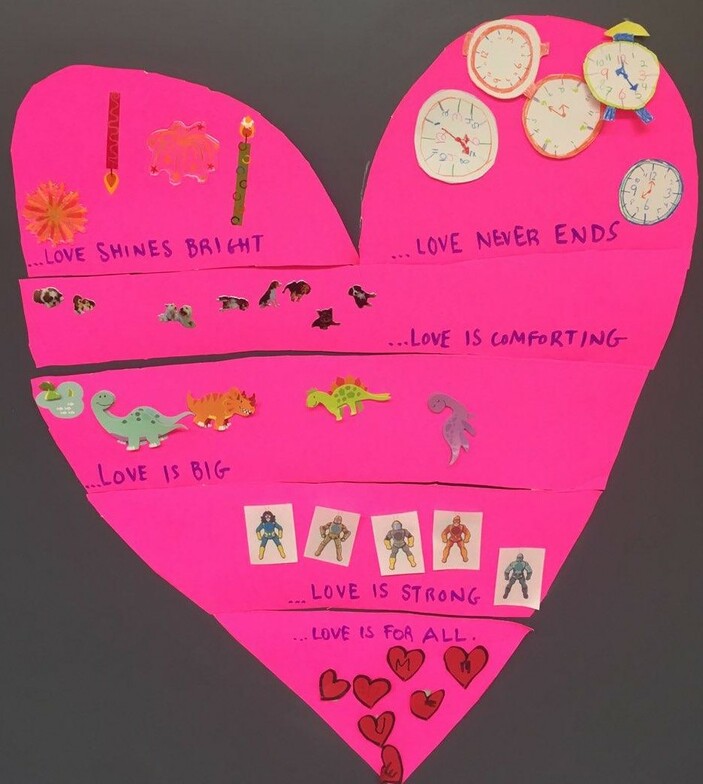 ...LOVE SHINES BRIGHT
...LOVE NEVER ENDS
...LOVE IS COMFORTING
...LOVE IS BIG
...LOVE IS STRONG
...LOVE IS FOR ALL.
M